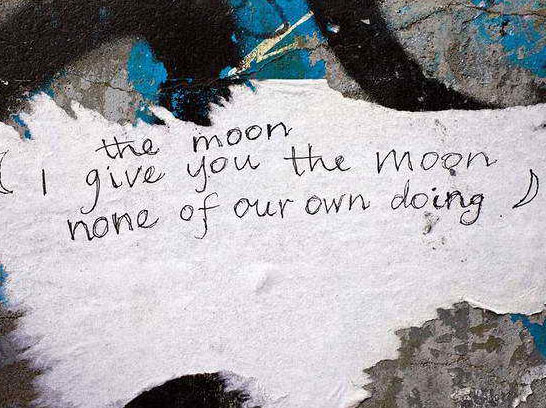 the moon
( I give you the moon
none of our own doing )